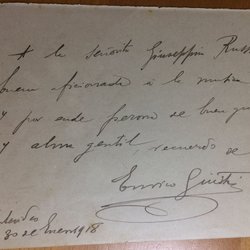 A la señorita Giuseppina Russ
buena aficionada a la musica
y por ende persona de buen gus
y alma gentil recuerdo de
Enrico
30 de Enero 1918